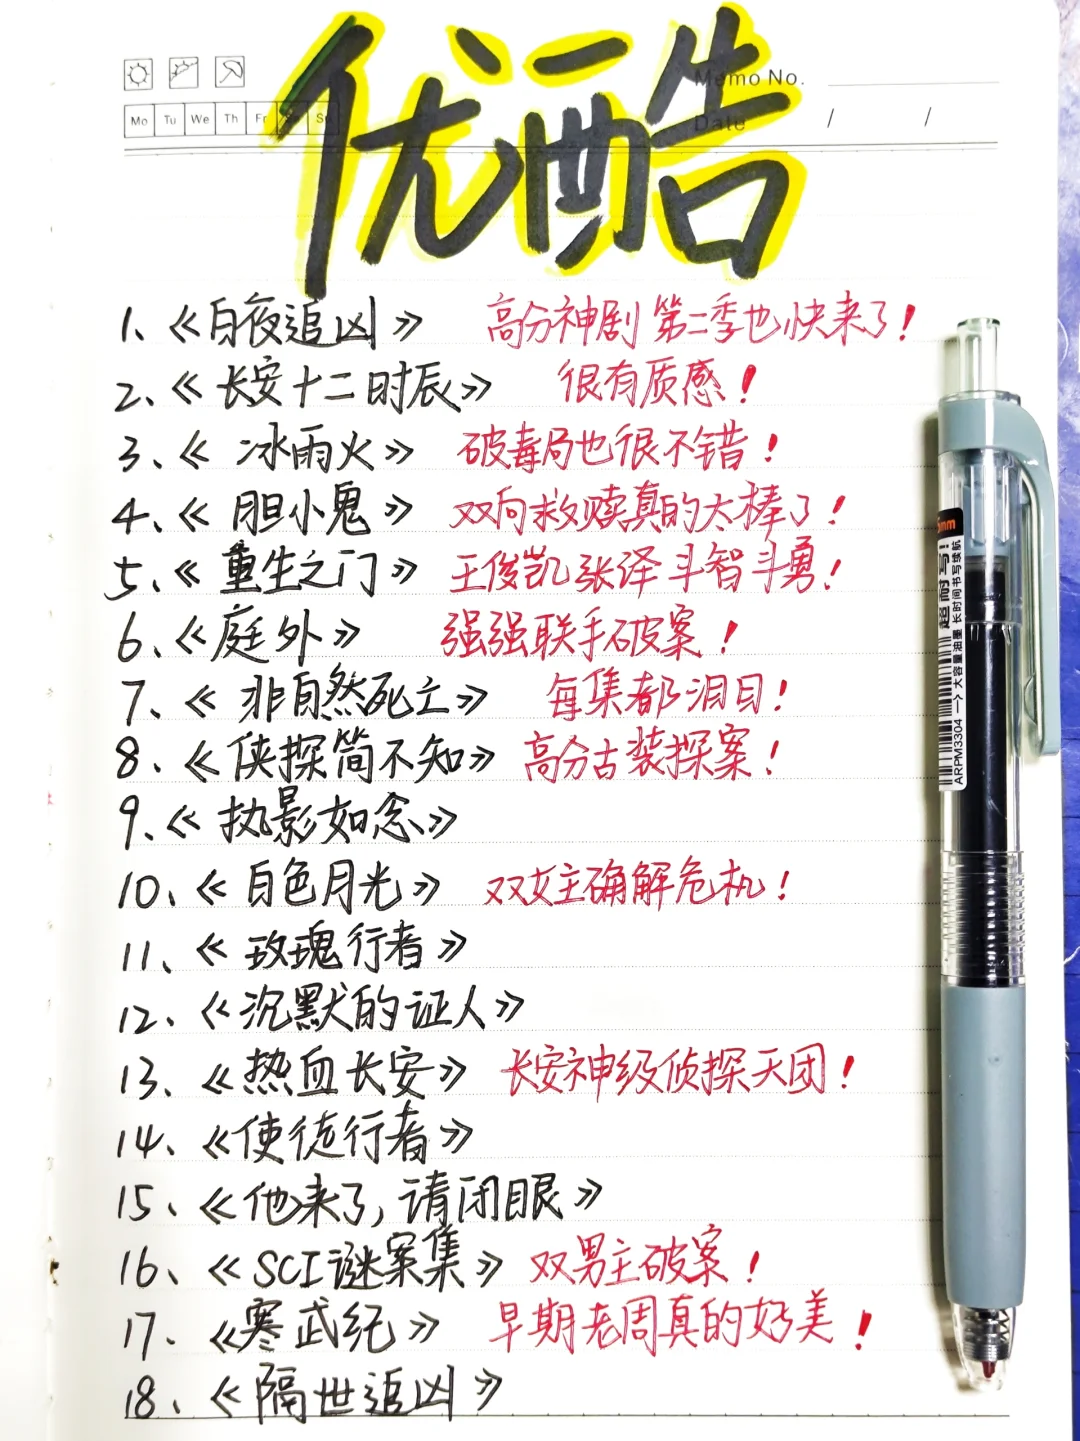 优酷
Memo No.
Mo Tu We Th Fr Sa Su
Date / /
1、《白夜追凶》 高分神剧 第二季也快来了！
2、《长安十二时辰》 很有质感！
3、《冰雨火》 破毒局也很不错！
4、《胆小鬼》 双向救赎真的太棒了！
5、《重生之门》 王俊凯张译斗智斗勇！
6、《庭外》 强强联手破案！
7、《非自然死亡》 每集都泪目！
8、《侠探简不知》 高分古装探案！
9、《执影如念》
10、《白色月光》 双女主确解危机！
11、《玫瑰行者》
12、《沉默的证人》
13、《热血长安》 长安神级侦探天团！
14、《使徒行者》
15、《他来了,请闭眼》
16、《SCI谜案集》 双男主破案！
17、《寒武纪》 早期老周真的好美！
18、《隔世追凶》
mm
超耐写！
大容量油墨 长时间书写续航
ARPM3304